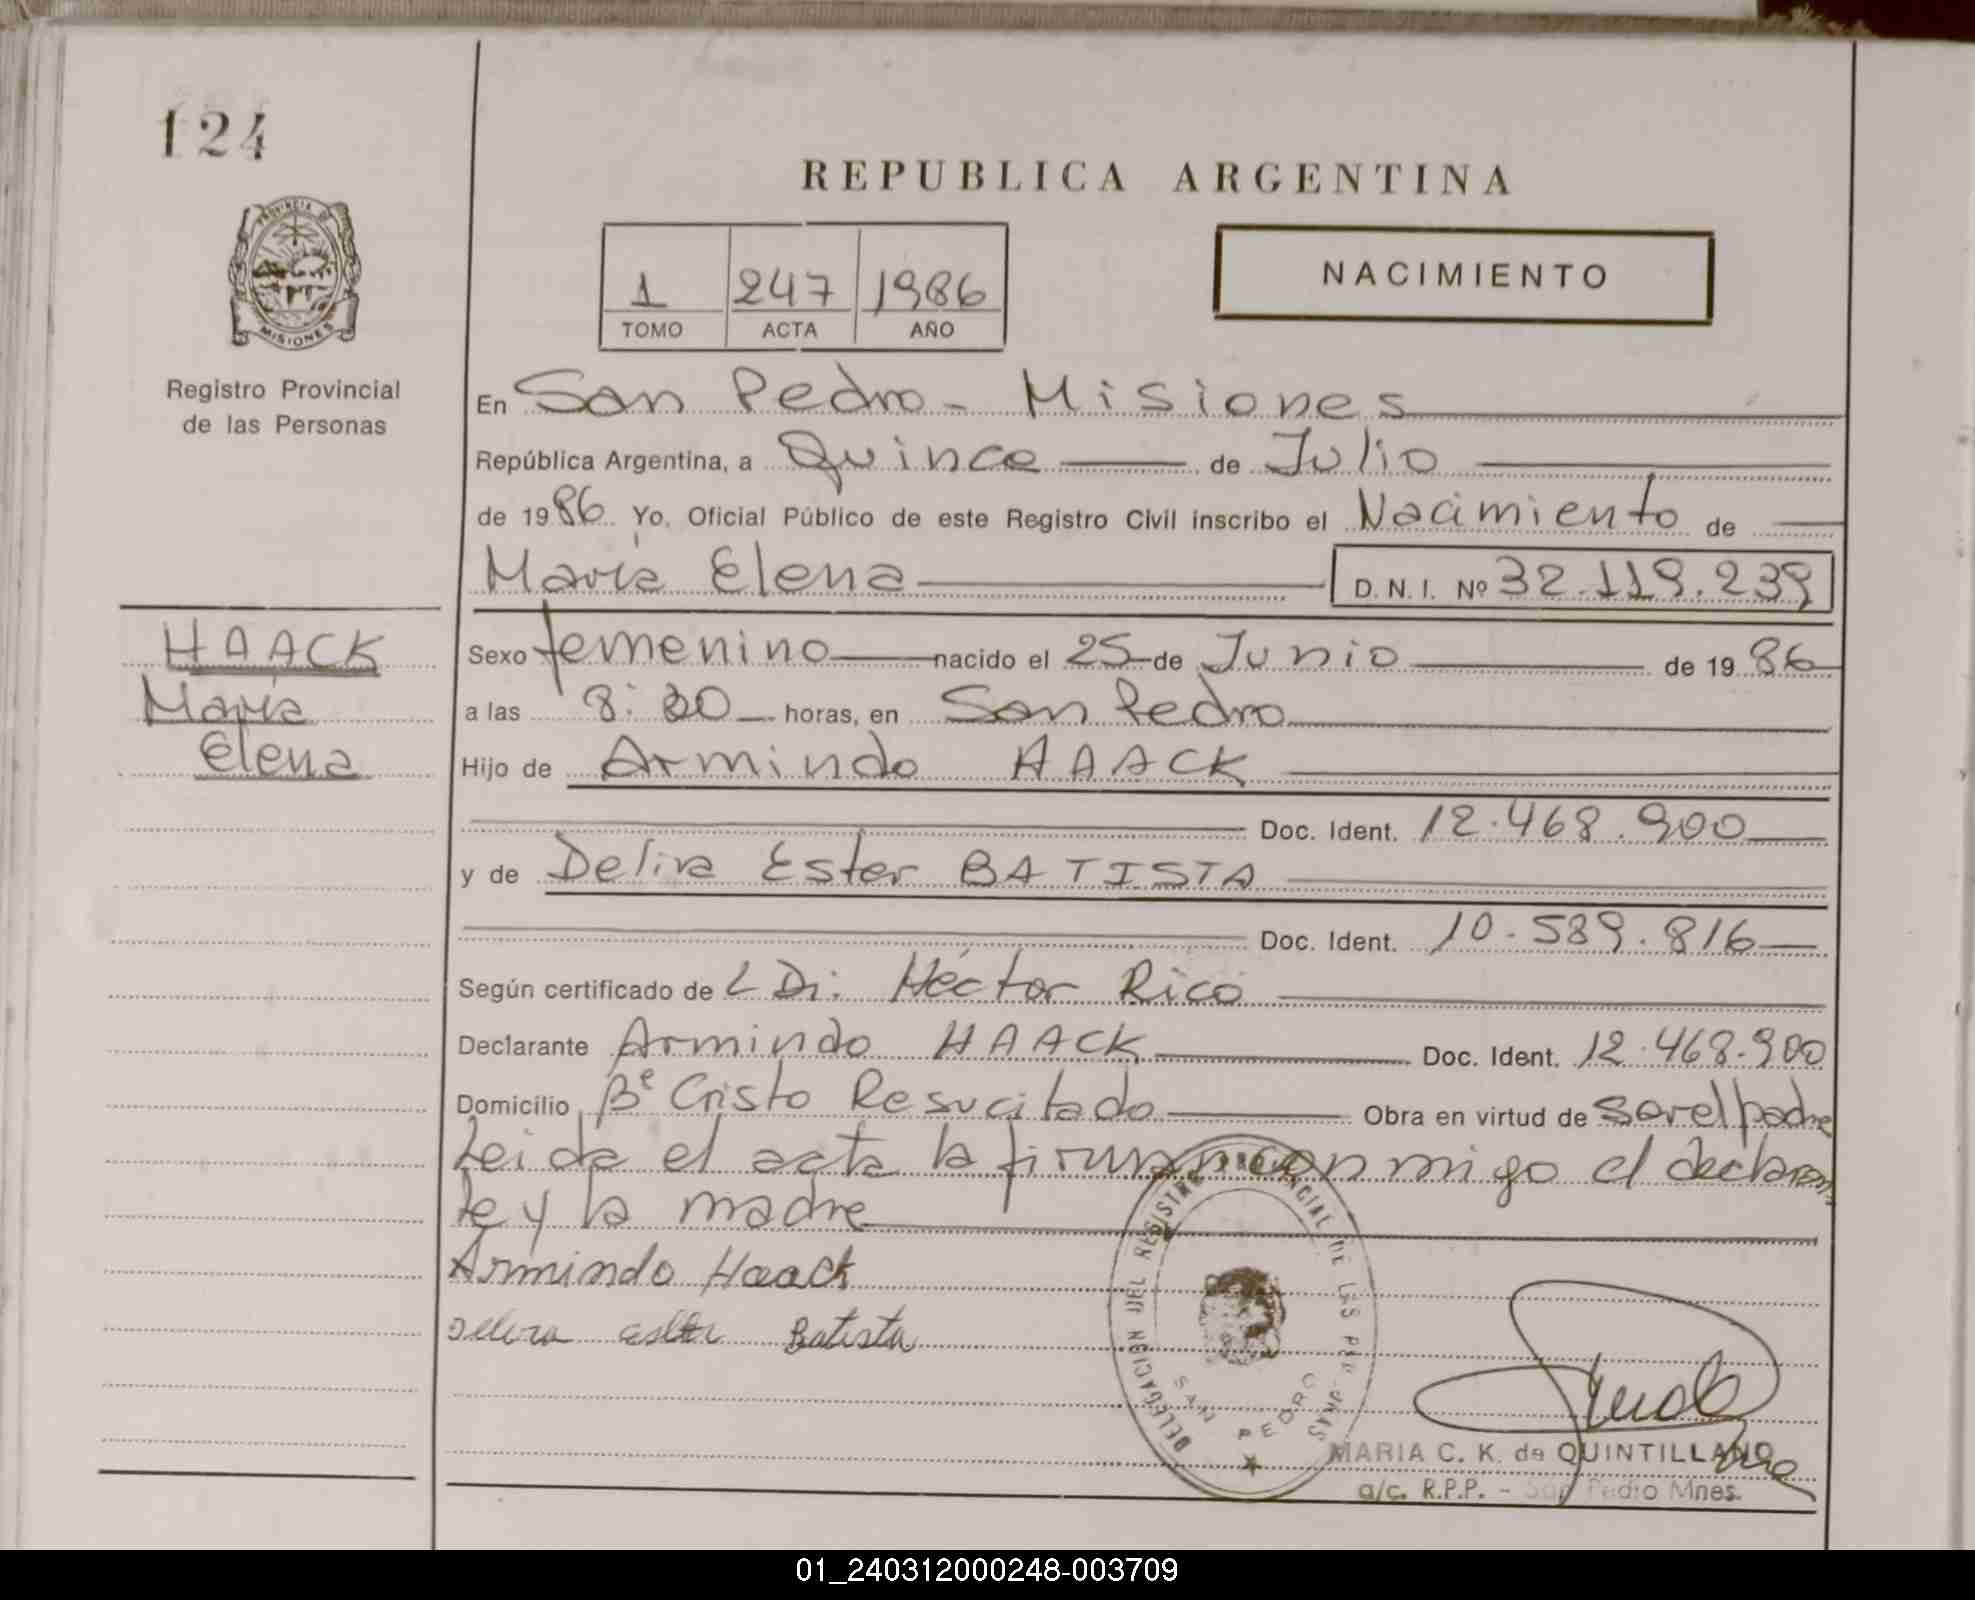 124
REPUBLICA ARGENTINA
PROVINCIA DE
MISIONES
Registro Provincial
de las Personas
1 247 1986
TOMO ACTA AÑO
NACIMIENTO
En San Pedro - Misiones
República Argentina, a Quince de Julio
de 1986 Yo, Oficial Público de este Registro Civil inscribo el Nacimiento de
María Elena D. N. I. Nº 32.119.239
HAACK
María
Elena
Sexo femenino nacido el 25 de Junio de 1986
a las 8:30 horas, en San Pedro
Hijo de Armindo HAACK
Doc. Ident. 12.468.900
y de Delira Ester BATISTA
Doc. Ident. 10.589.816
Según certificado de Héctor Rico
Declarante Armindo HAACK Doc. Ident. 12.468.900
Domicilio Bº Cristo Resucitado Obra en virtud de ser el padre
Leida el acta la firman conmigo el declaran
te y la madre
Armindo Haack
Delira ester Batista
DELEGACION DEL REGISTRO PROVINCIAL DE LAS PERSONAS
SAN PEDRO
MARIA C. K. de QUINTILLANO
a/c. R.P.P. - San Pedro Mnes.
01_240312000248-003709